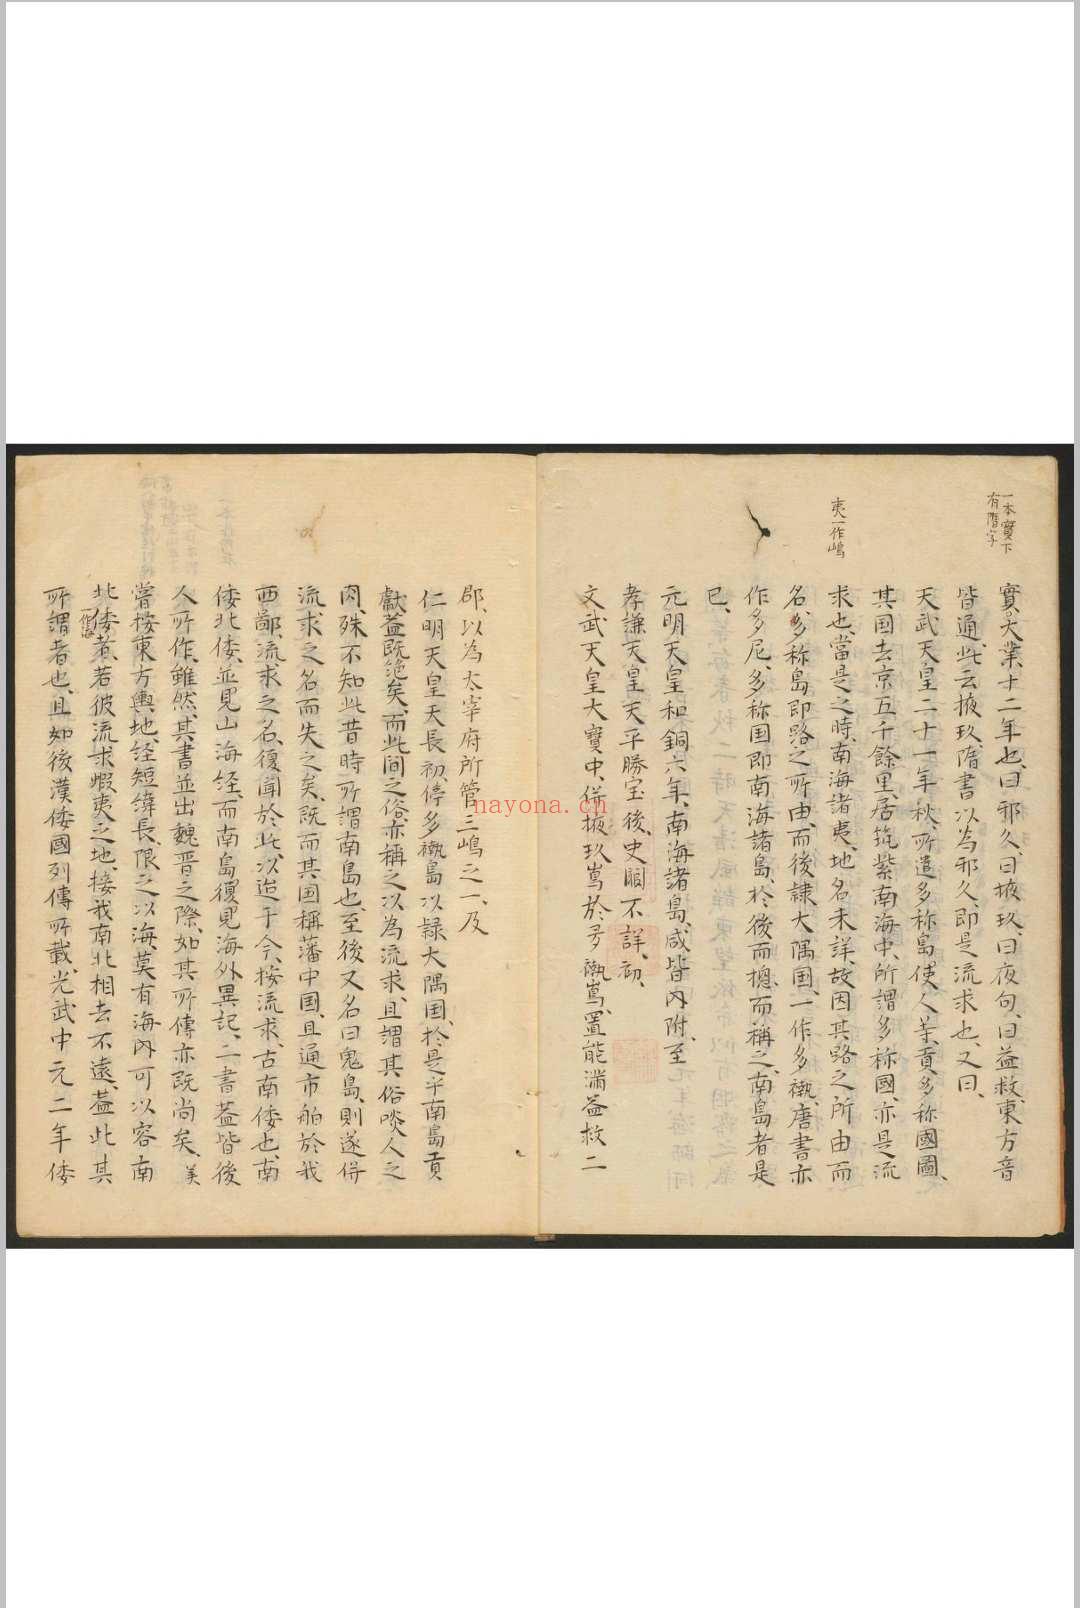 一本實下
有隋字
實。大業十二年也、曰邪久、曰掖玖、曰夜句、曰益救、東方音
皆通、此云掖玖、隋書以為邪久、即是流求也、又曰、
天武天皇二十一年秋、所遣多称島使人等、貢多称國圖、
其国去京五千餘里、居筑紫南海中、所謂多称國、亦是流
求也、當是之時、南海諸夷、地名未詳、故因其路之所由而
夷一作嶋
名、多称島即路之所由、而後隷大隅国、一作多褹、唐書亦
作多尼、多称国即南海諸島、於後而摠而稱之、南島者是
已、
元明天皇和銅六年、南海諸島、咸皆内附、至
孝謙天皇天平勝宝後、史闕不詳、初、
文武天皇大寶中、併掖玖嶌於多褹嶌、置能滿益救二
郡、以為太宰府所管三嶋之一、及
仁明天皇天長初、停多褹島以隷大隅国、於是乎南島貢
獻、益既絶矣、而此間之俗、亦稱之以為流求、且謂其俗啖人之
肉、殊不知此昔時所謂南島也、至後又名曰鬼島、則遂併
流求之名而失之矣、既而其国稱藩中国、且通市舶於我
西鄙、流求之名、復聞於此、以迨于今、按流求、古南倭也、南
倭北倭、並見山海経、而南島復見海外異記、二書蓋皆後
人所作、雖然、其書並出魏晋之際、如其所傳亦既尚矣、美
嘗按東方輿地、経短緯長、限之以海、莫有海内可以容南
北倭者、若彼流求蝦夷之地、接我南北、相去不遠、蓋此其
一作海
所謂者也、且如後漢倭國列傳所載、光武中元二年倭
nayona.cn